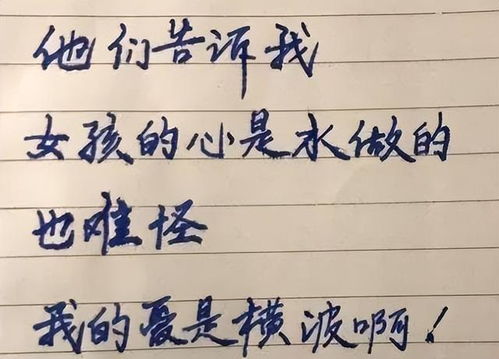 他们告诉我
女孩的心是水做的
也难怪
我的憂是横波啊！